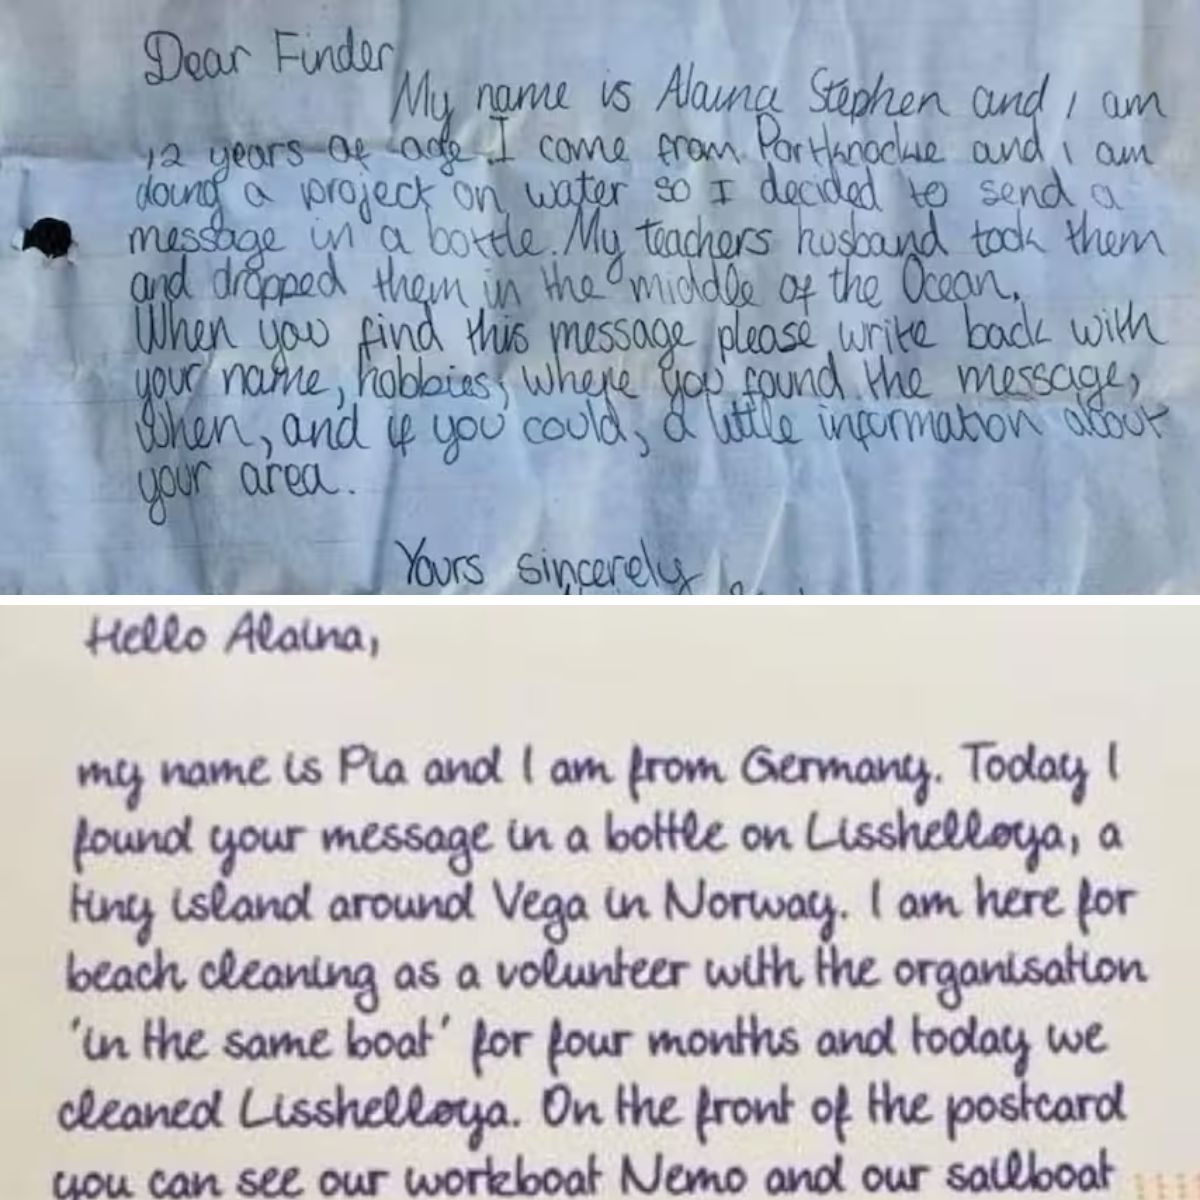 Dear Finder
My name is Alaina Stephen and I am
12 years of age I come from Portknockie and I am
doing a project on water so I decided to send a
message in a bottle. My teachers husband took them
and dropped them in the middle of the Ocean.
When you find this message please write back with
your name, hobbies, where you found the message,
when, and if you could, a little information about
your area.
Yours sincerely
Hello Alaina,
my name is Pia and I am from Germany. Today I
found your message in a bottle on Lisshelløya, a
tiny island around Vega in Norway. I am here for
beach cleaning as a volunteer with the organisation
'in the same boat' for four months and today we
cleaned Lisshelløya. On the front of the postcard
you can see our workboat Nemo and our sailboat